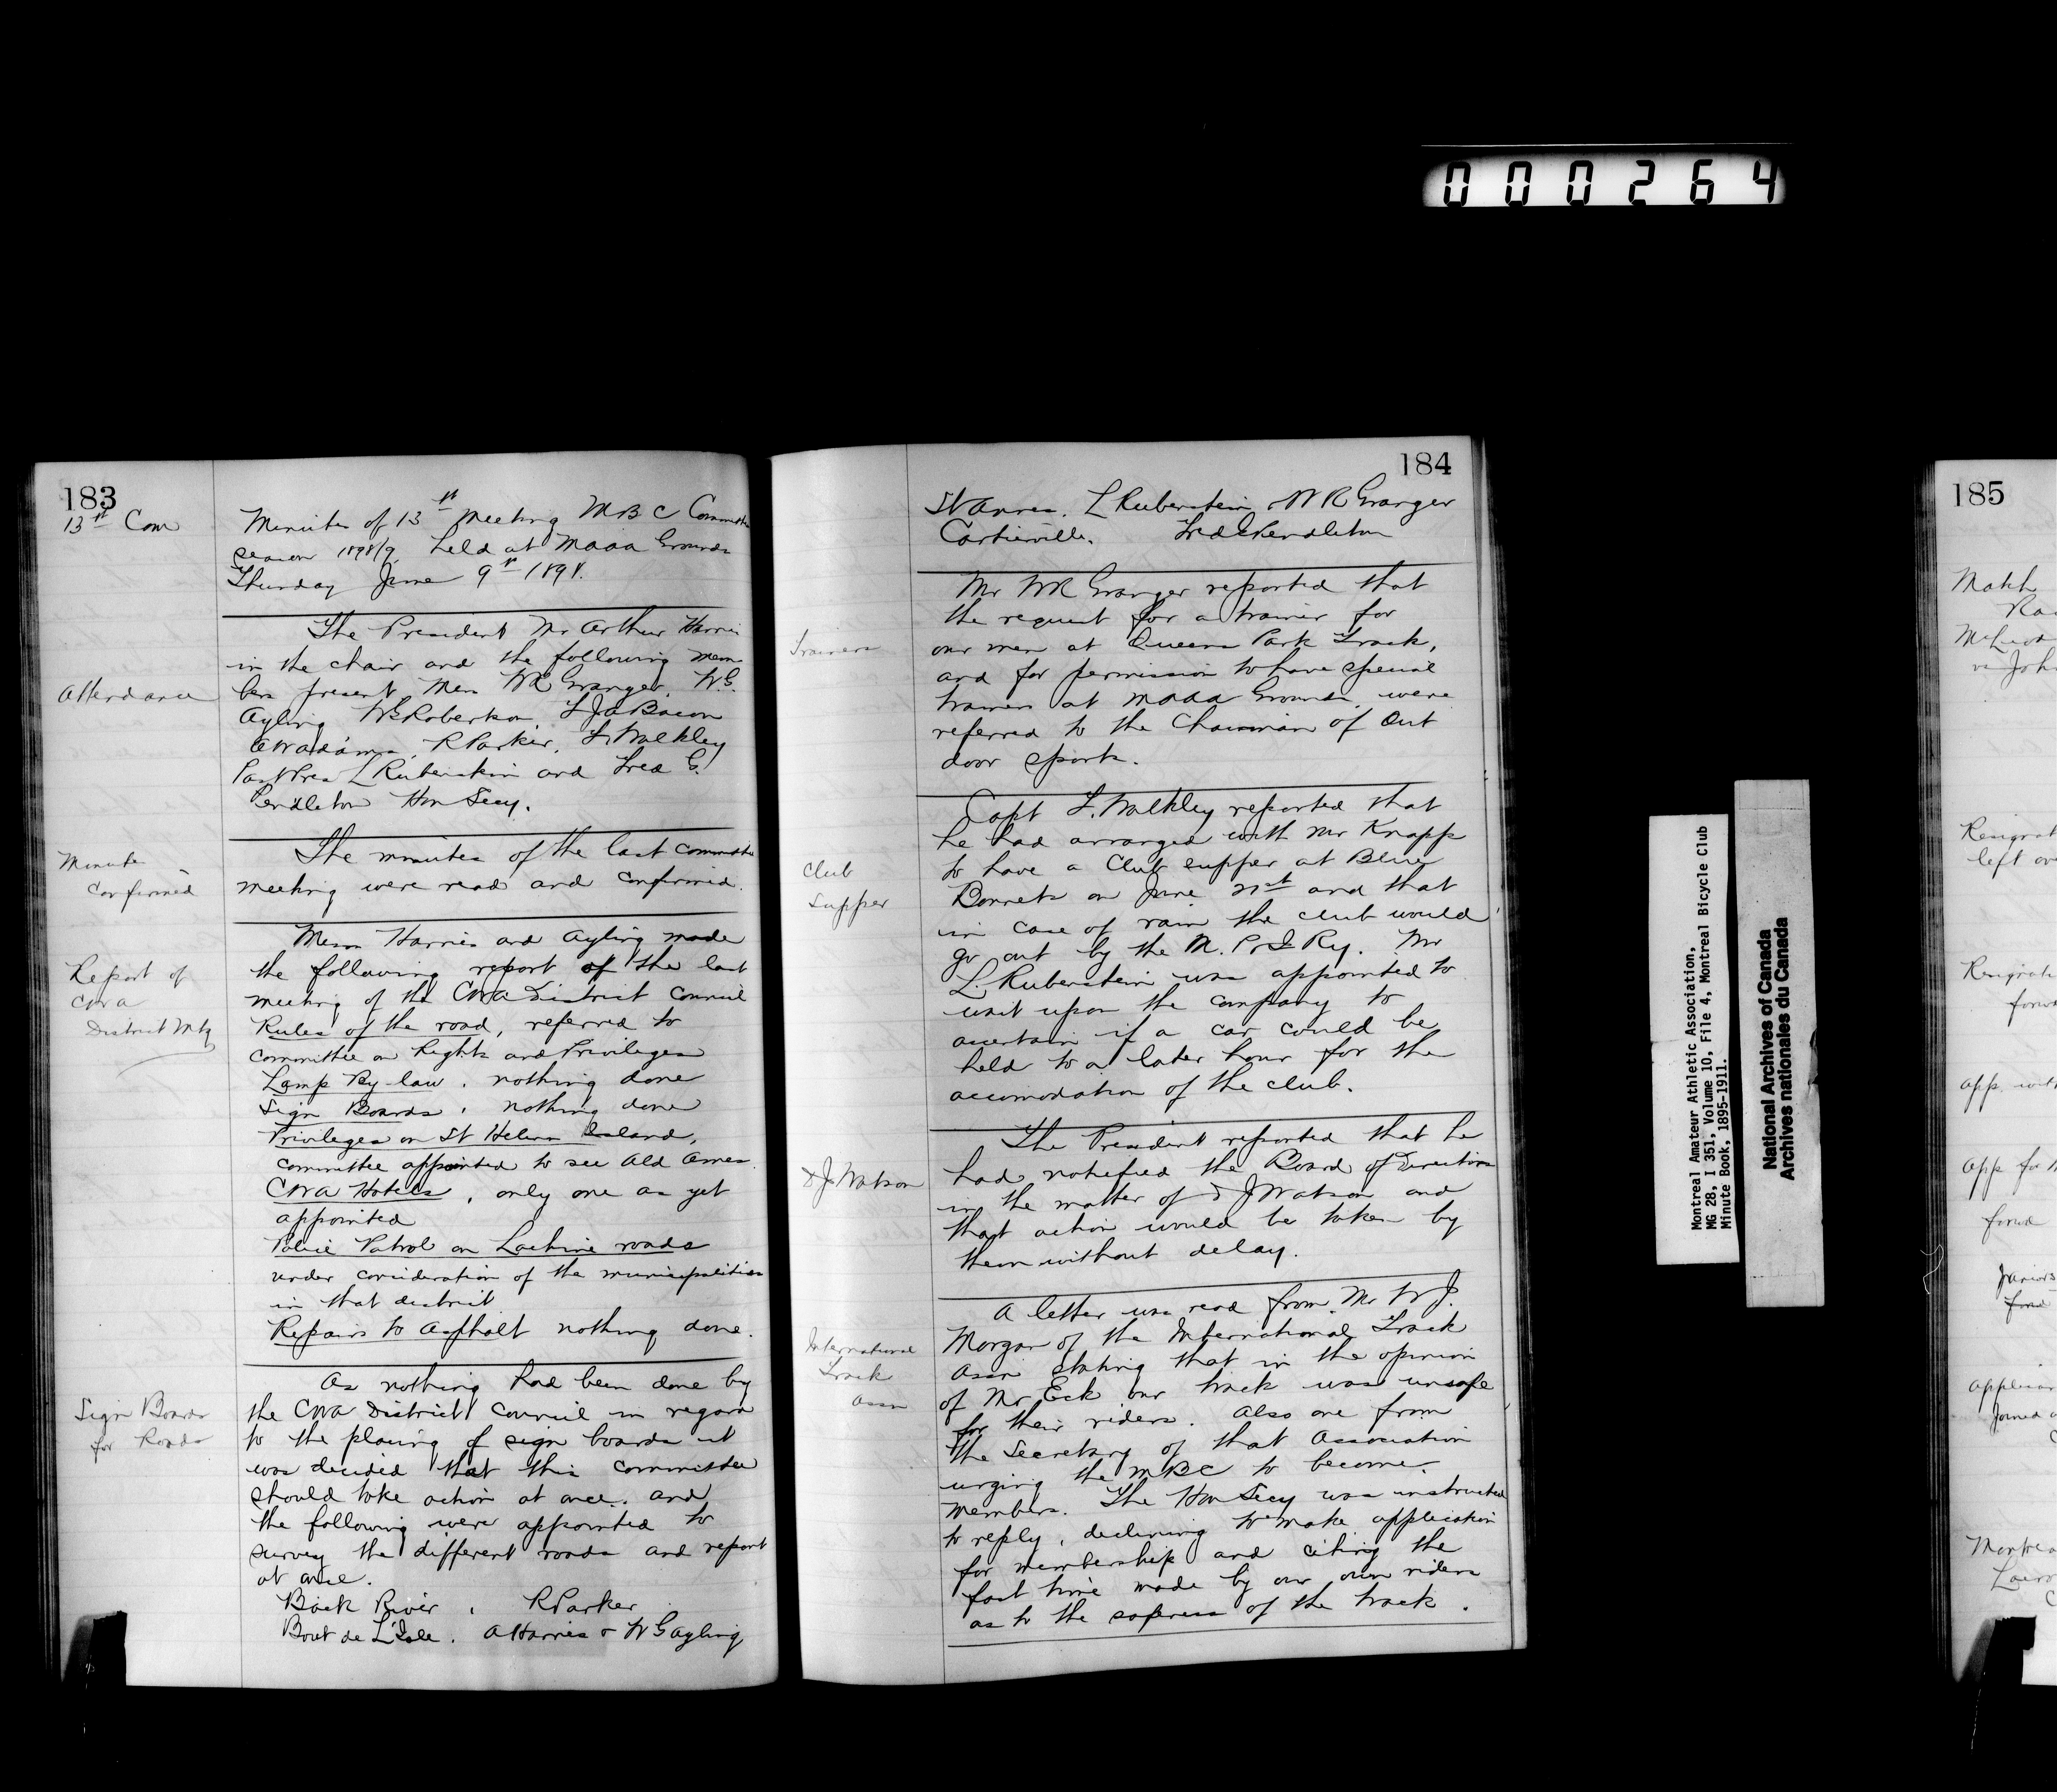 000264
183
13th Com
Minutes of 13th Meeting MBC Committee
season 1898/9, held at MAAA Grounds
Thursday June 9th 1898.
Attendance
The President Mr Arthur Harris
in the chair and the following mem
bers present Mess WR Granger, W.G.
Ayling WG Roberton, LJA Bacon
R Parker, L. Walkley
Past Pres L Rubenstein and Fred G.
Pendleton Hon Secy.
Minutes
Confirmed
The minutes of the last committee
meeting were read and confirmed.
Report of
CWA
District Mtg
Messrs Harris and Ayling made
the following report of the last
meeting of the CWA District Council
Rules of the road, referred to
committee on Rights and Privileges
Lamp By-law, nothing done
Sign Boards, nothing done
Privileges on St Helens Island,
committee appointed to see Ald Ames.
CWA Hotels, only one as yet
appointed
Police Patrol on Lachine roads
under consideration of the municipalities
in that district
Repairs to Asphalt nothing done.
Sign Boards
for Roads
As nothing had been done by
the CWA District Council in regard
to the placing of sign boards it
was decided that this committee
should take action at once. and
the following were appointed to
survey the different roads and report
at once.
Back River, R Parker
Bout de L'Isle. A Harris & WG Ayling
184
St Annes. L Rubenstein, WR Granger
Cartierville. Fred G Pendleton
Trainers
Mr WR Granger reported that
the request for a trainer for
our men at Queens Park Track,
and for permission to have special
trainers at MAAA Grounds, were
referred to the Chairman of Out
door sports.
Club
Supper
Capt L. Walkley reported that
he had arranged with Mr Knapp
to have a Club supper at Blue
Bonnets on June 21st and that
in case of rain the club would
go out by the M. P & I Ry. Mr
L. Rubenstein was appointed to
wait upon the company to
ascertain if a car could be
held to a later hour for the
accomodation of the club.
J Watson
The President reported that he
had notefied the Board of Directors
in the matter of J Watson and
that action would be taken by
them without delay.
International
Track
Assn
A letter was read from Mr W J.
Morgan of the International Track
Assn stating that in the opinion
of Mr Eck our track was unsafe
for their riders. Also one from
the Secretary of that Association
urging the MBC to become
members. The Hon Secy was instructed
to reply, declining to make application
for membership and citing the
fast time made by our own riders
as to the safeness of the track.
Montreal Amateur Athletic Association,
MG 28, I 351, Volume 10, File 4, Montreal Bicycle Club
Minute Book, 1895-1911.
National Archives of Canada
Archives nationales du Canada
185
Match
McLeod
vs John
Resignat
left ov
Resignati
forw
app with
app for
forw
Juniors
Joined